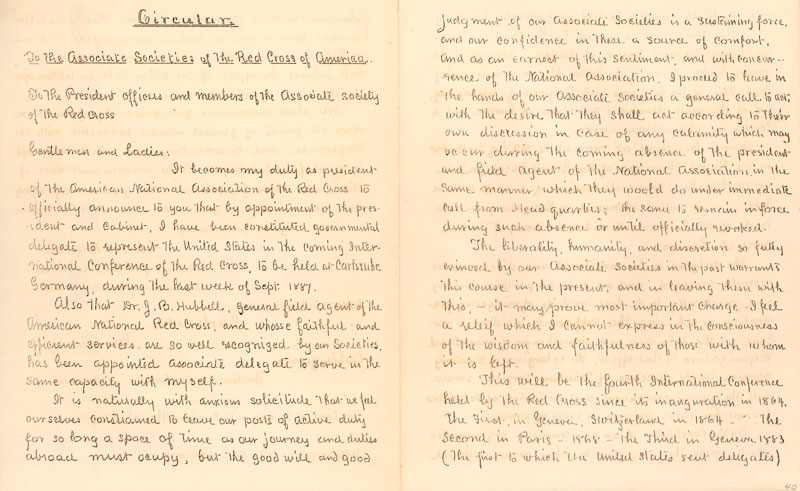 Circular
To the Associate Societies of the Red Cross of America.
To the President officers and members of the Associate society
of the Red Cross
Gentlemen and Ladies:
It becomes my duty as president
of the American National Association of the Red Cross to
officially announce to you that by appointment of the pres-
ident and Cabinet, I have been constituted governmental
delegate to represent the United States in the coming Inter-
national Conference of the Red Cross, to be held at Carlsruhe
Germany, during the last week of Sept. 1887.
Also that Dr. J. B. Hubbell, general field agent of the
American National Red Cross, and whose faithful and
efficient services are so well recognized by our Societies,
has been appointed associate delegate to serve in the
same capacity with myself.
It is naturally with anxious solicitude that we feel
ourselves constrained to leave our posts of active duty
for so long a space of time as our journey and duties
abroad must ocupy, but the good will and good
judgment of our Associate Societies is a sustaining force,
and our confidence in these a source of comfort,
and as an earnest of this sentiment, and with concur-
rence of the National Association, I proceed to leave in
the hands of our Associate Societies a general call to act;
with the desire that they shall act according to their
own discression in case of any calamity which may
occur during the coming absence of the president
and field agent of the National Association, in the
same manner which they would do under immediate
call from Head quarters; the same to remain in force
during such absence or until officially revoked.
The liberality, humanity, and discretion so fully
evinced by our Associate Societies in the past warrants
this course in the present, and in leaving them with
this, - it may prove most important charge - I feel
a releif which I cannot express in the consciousness
of the wisdom and faithfulness of those with whom
it is left.
This will be the fourth International Conference
held by the Red Cross since its inauguration in 1864.
The First, in Geneva, Switzerland in 1864 - The
Second in Paris - 1868 - The Third in Geneva 1883
(The first to which the United States sent delegates)
40